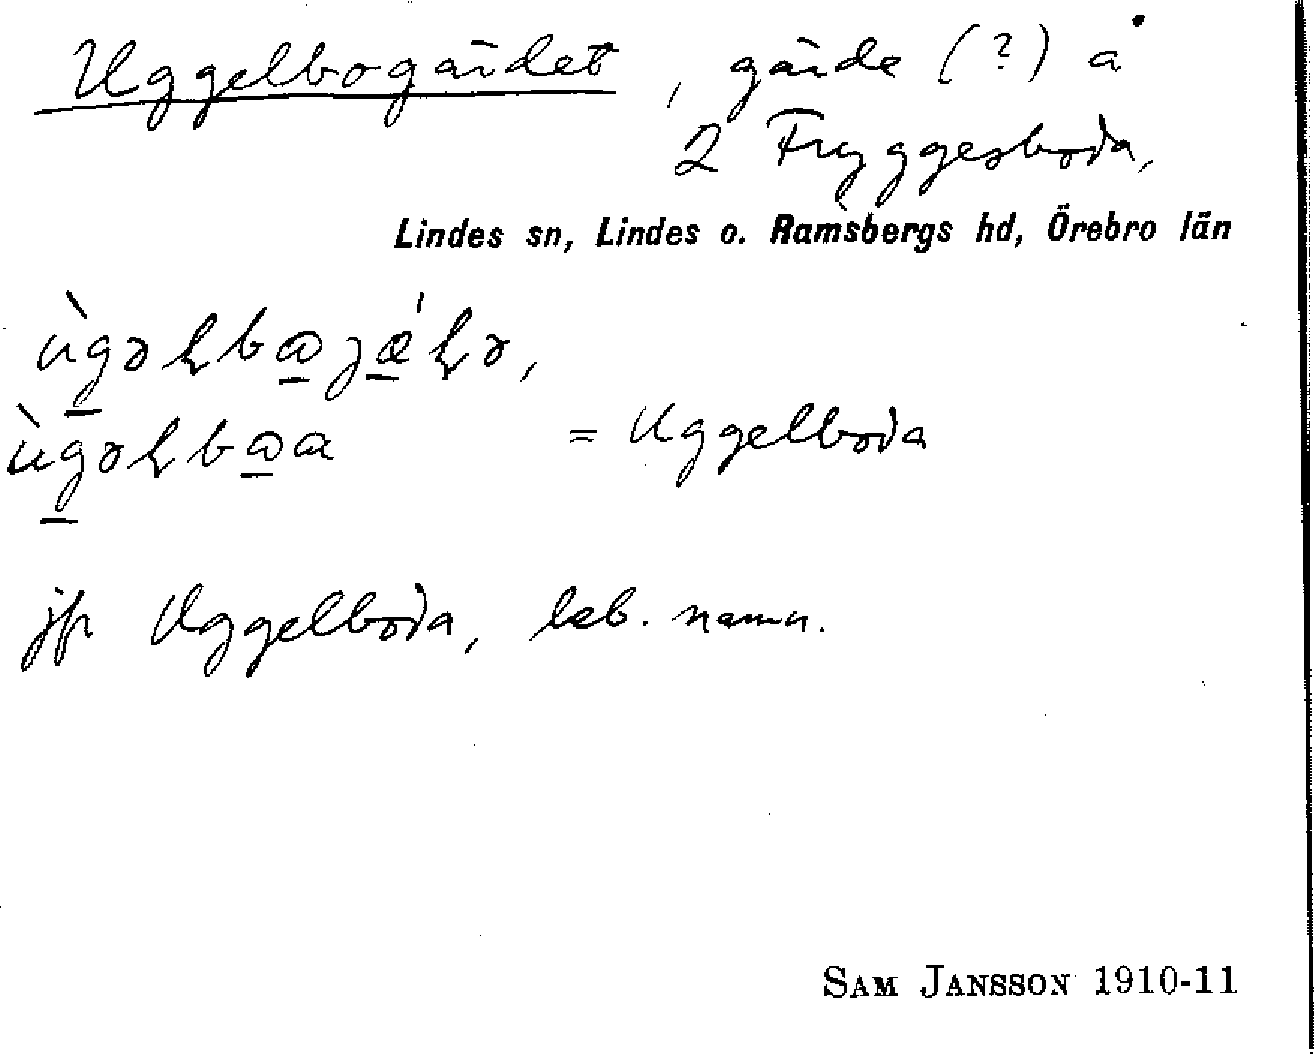 Uggelbogärdet, gärde (?) å
2 Fryggesboda,
Lindes sn, Lindes o. Ramsbergs hd, Örebro län
= Uggelboda
jfr Uggelboda, beb. namn.
SAM JANSSON 1910-11